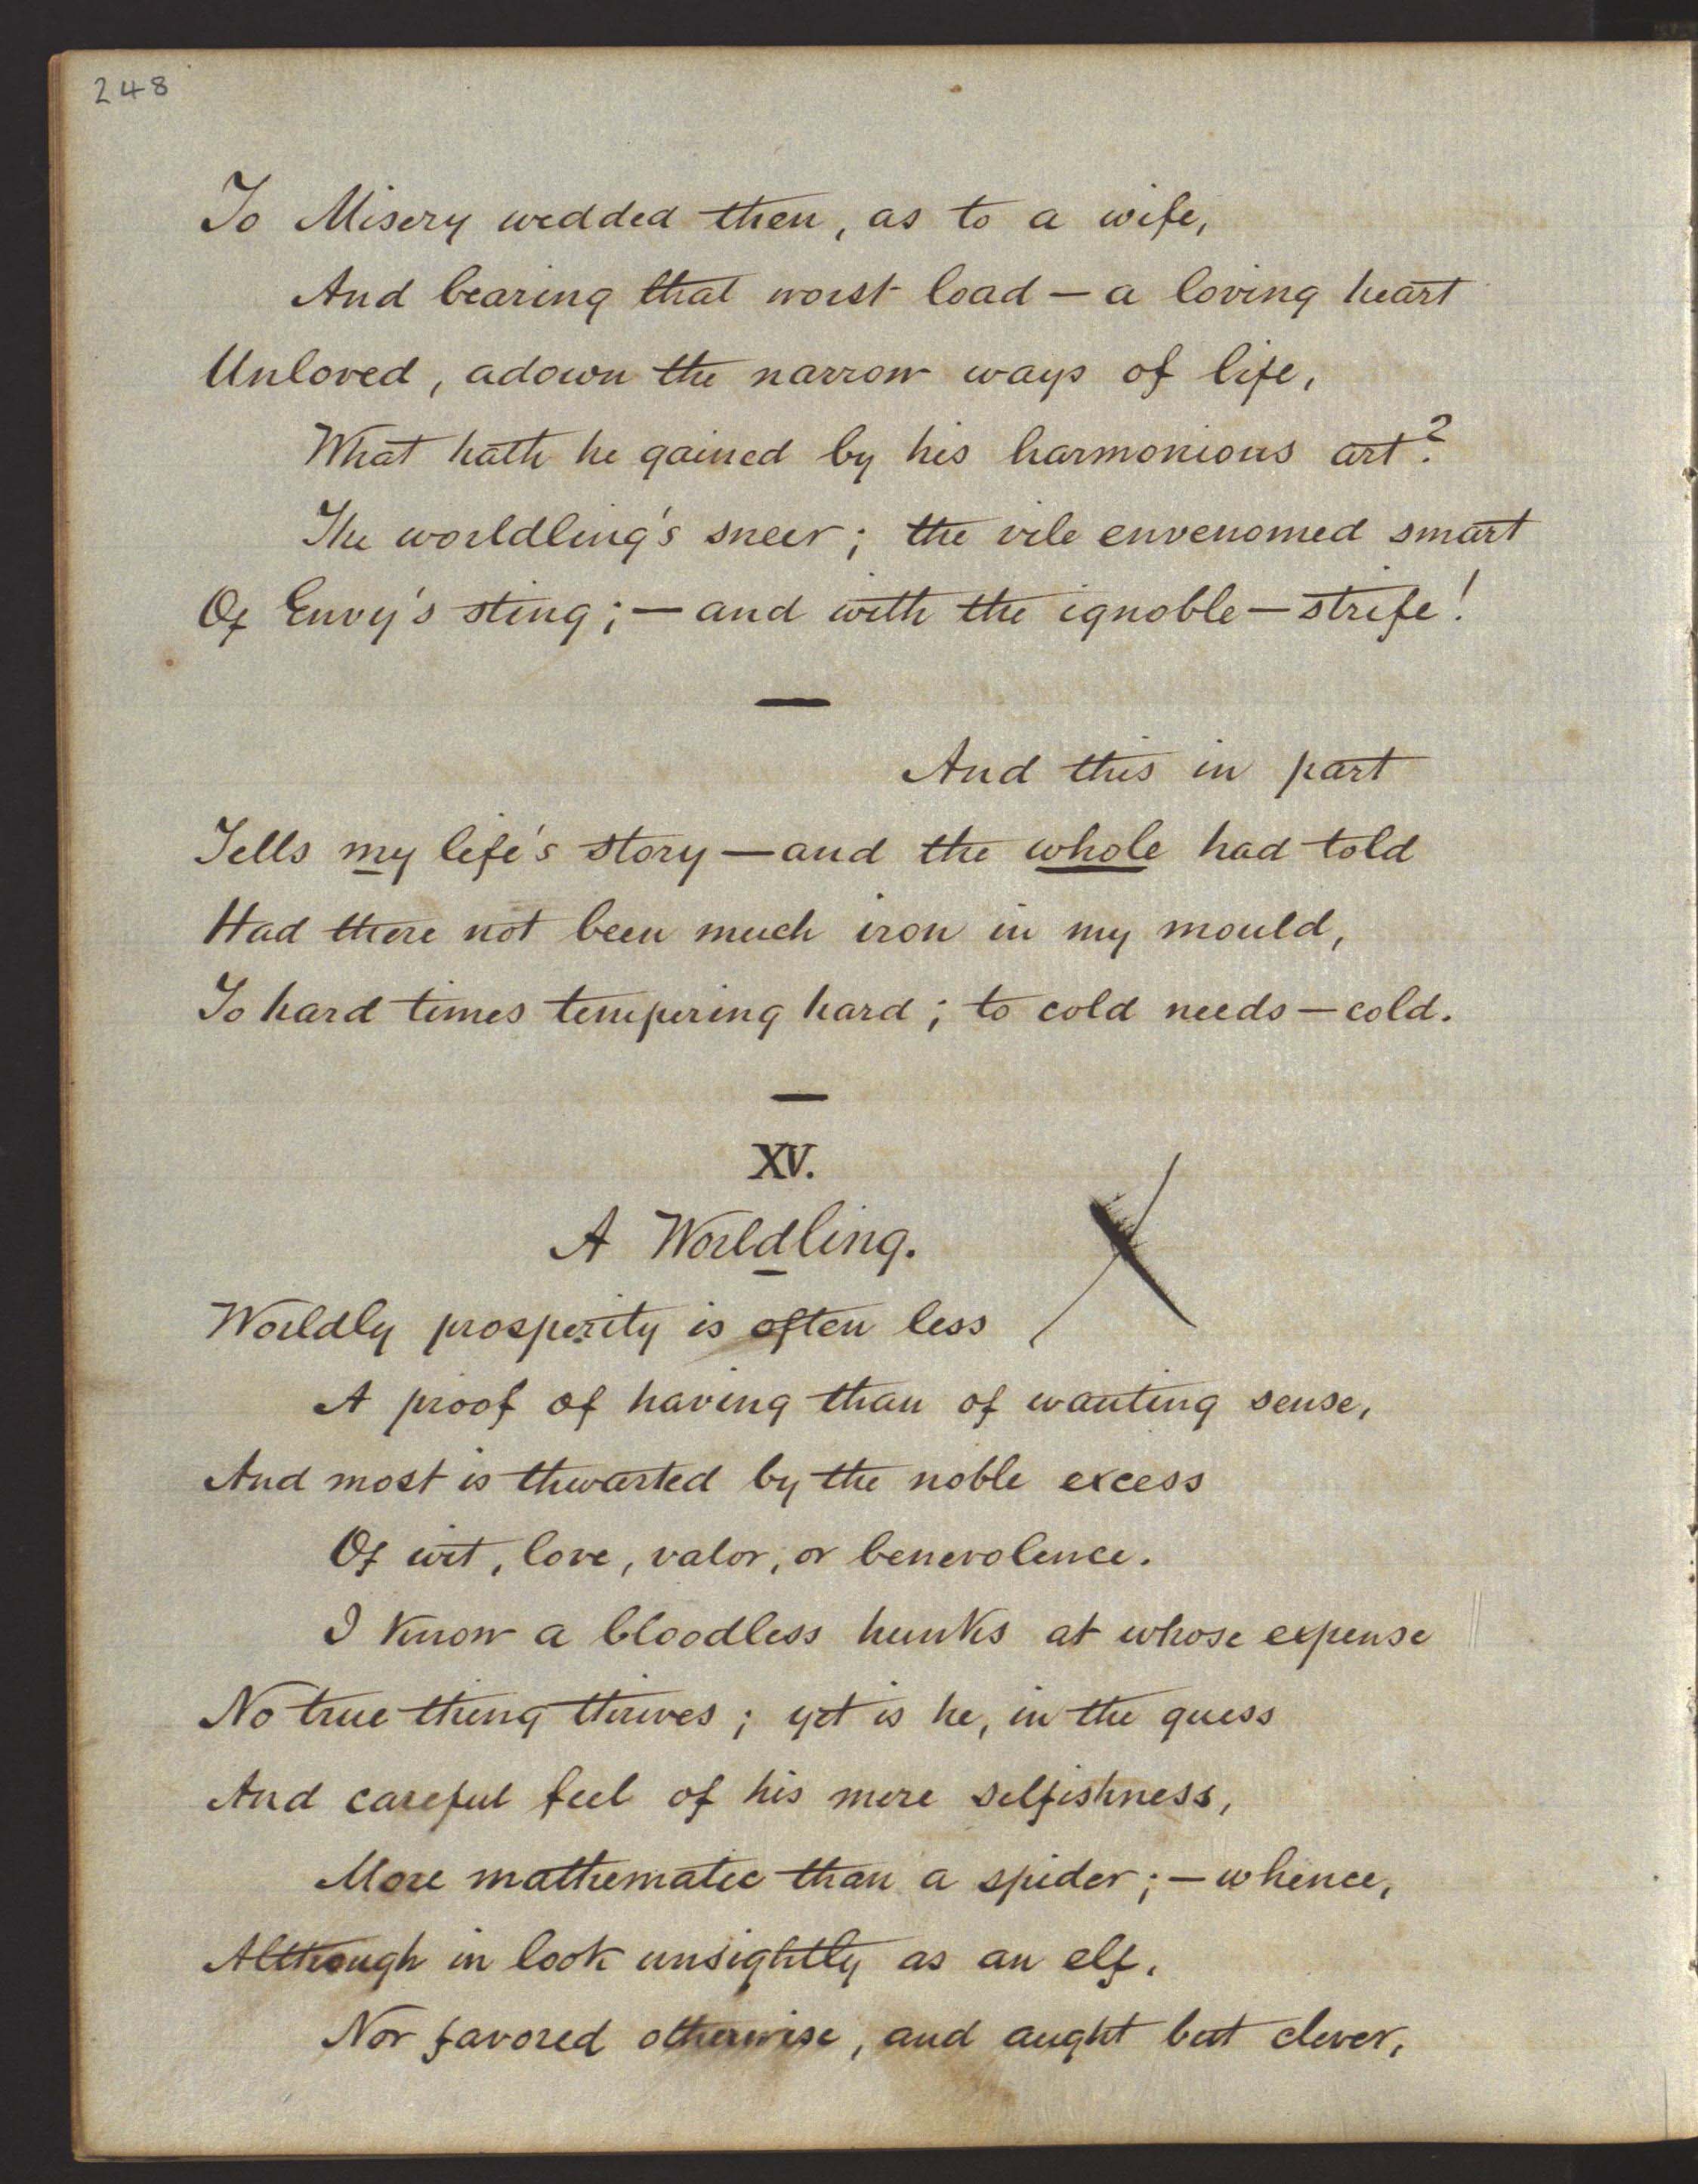 248
To Misery wedded then, as to a wife,
And bearing that worst load — a loving heart
Unloved, adown the narrow ways of life,
What hath he gained by his harmonious art?
The worldling's sneer; the vile envenomed smart
Of Envy's sting; — and with the ignoble — strife!
And this in part
Tells my life's story — and the whole had told
Had there not been much iron in my mould,
To hard times tempering hard; to cold needs — cold.
XV.
A Worldling.
Worldly prosperity is often less
A proof of having than of wanting sense,
And most is thwarted by the noble excess
Of wit, love, valor, or benevolence.
I know a bloodless hunks at whose expense
No true thing thrives; yet is he, in the guess
And careful feel of his mere selfishness,
More mathematic than a spider; — whence,
Although in look unsightly as an elf,
Nor favored otherwise, and aught but clever,